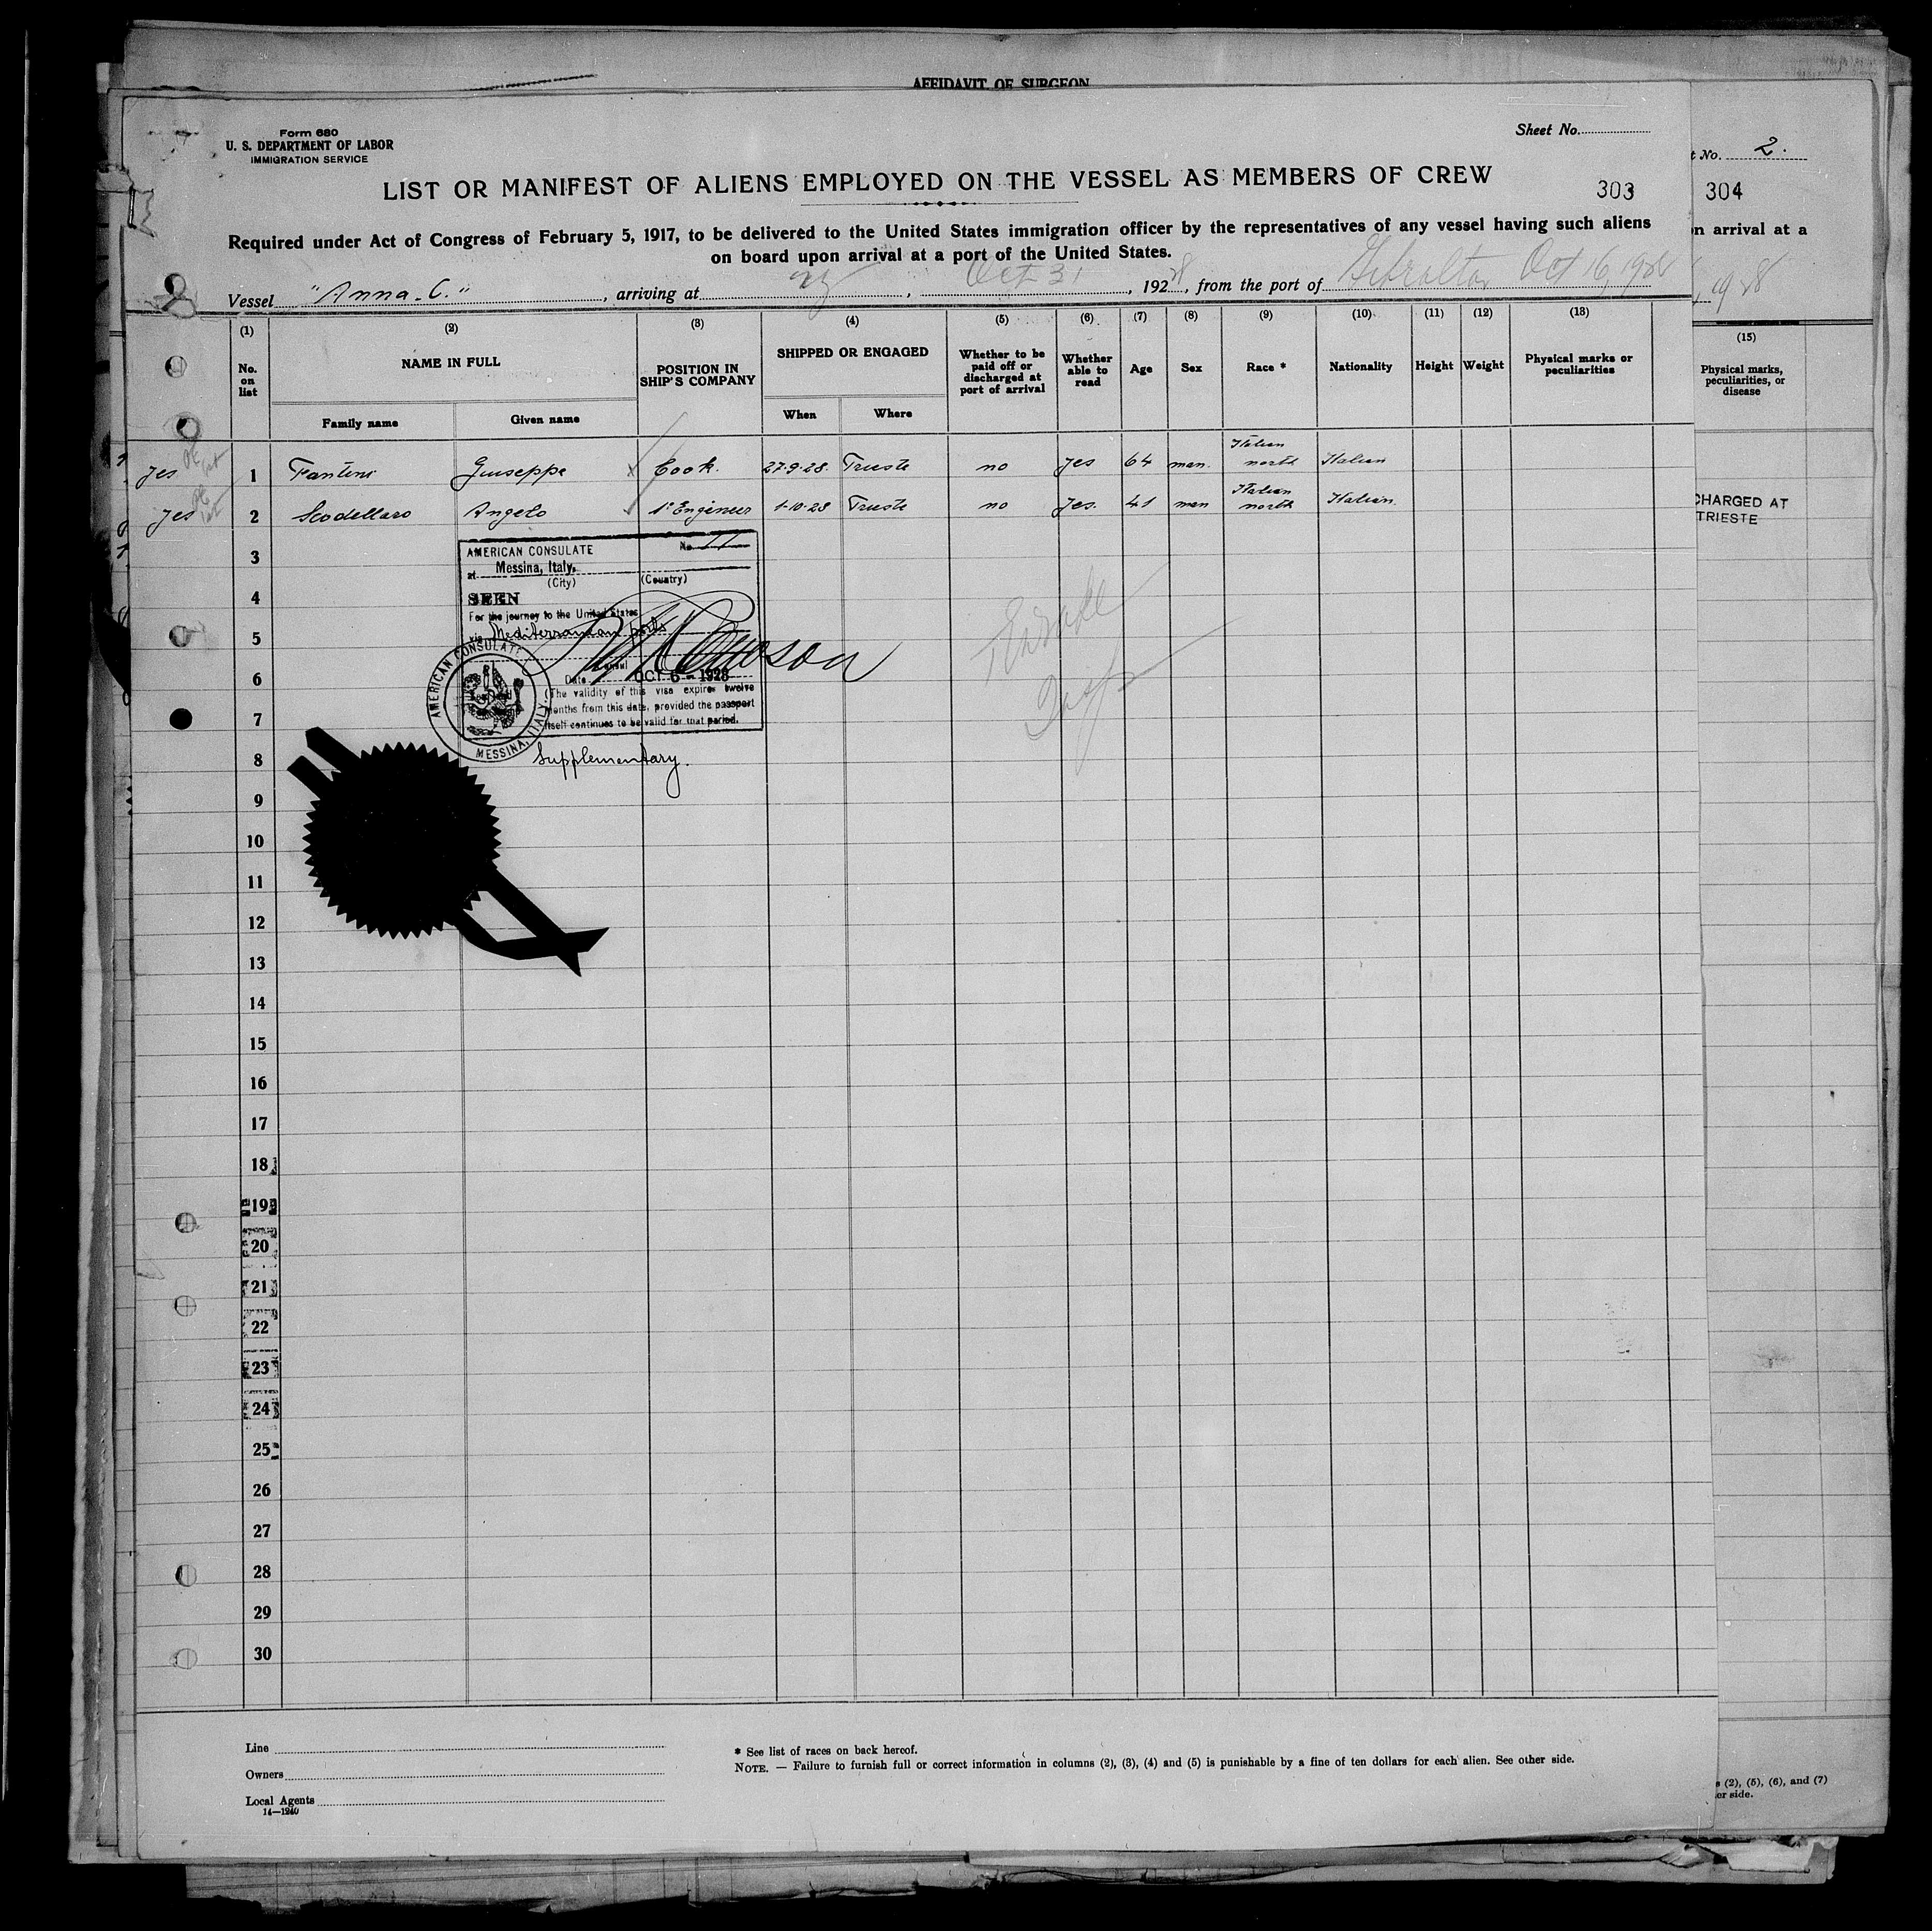 AFFIDAVIT OF SURGEON
Form 680
U. S. DEPARTMENT OF LABOR
IMMIGRATION SERVICE
Sheet No.
t No. 2.
LIST OR MANIFEST OF ALIENS EMPLOYED ON THE VESSEL AS MEMBERS OF CREW
303
304
Required under Act of Congress of February 5, 1917, to be delivered to the United States immigration officer by the representatives of any vessel having such aliens
on board upon arrival at a port of the United States.
n arrival at a
Vessel "Anna-C.", arriving at ny, Oct 31, 1928, from the port of Gibraltar Oct 16, 1928
, 1928
(1) (2) (3) (4) (5) (6) (7) (8) (9) (10) (11) (12) (13)
(15)
No. on list
NAME IN FULL
Family name
Given name
POSITION IN SHIP'S COMPANY
SHIPPED OR ENGAGED
When
Where
Whether to be paid off or discharged at port of arrival
Whether able to read
Age
Sex
Race *
Nationality
Height
Weight
Physical marks or peculiarities
Physical marks, peculiarities, or disease
yes 1 Fantini Giuseppe Cook. 27-9-28 Trieste no yes 64 man. Italian north Italian
yes 2 Scodellaro Angelo 1° Engineer 1-10-28 Trieste no yes. 41 man Italian north Italian.
CHARGED AT
TRIESTE
3
4
5
6
7
8
AMERICAN CONSULATE No 11
at Messina, Italy.
(City) (Country)
SEEN
For the journey to the United States
via Mediterranean ports
Consul
Date OCT 6 - 1928
(The validity of this visa expires twelve
months from this date, provided the passport
itself continues to be valid for that period.
AMERICAN CONSULATE
MESSINA, ITALY.
Supplementary.
9
10
11
12
13
14
15
16
17
18
19
20
21
22
23
24
25
26
27
28
29
30
Line
Owners
Local Agents
14—1240
* See list of races on back hereof.
NOTE. — Failure to furnish full or correct information in columns (2), (3), (4) and (5) is punishable by a fine of ten dollars for each alien. See other side.
s (2), (5), (6), and (7)
er side.